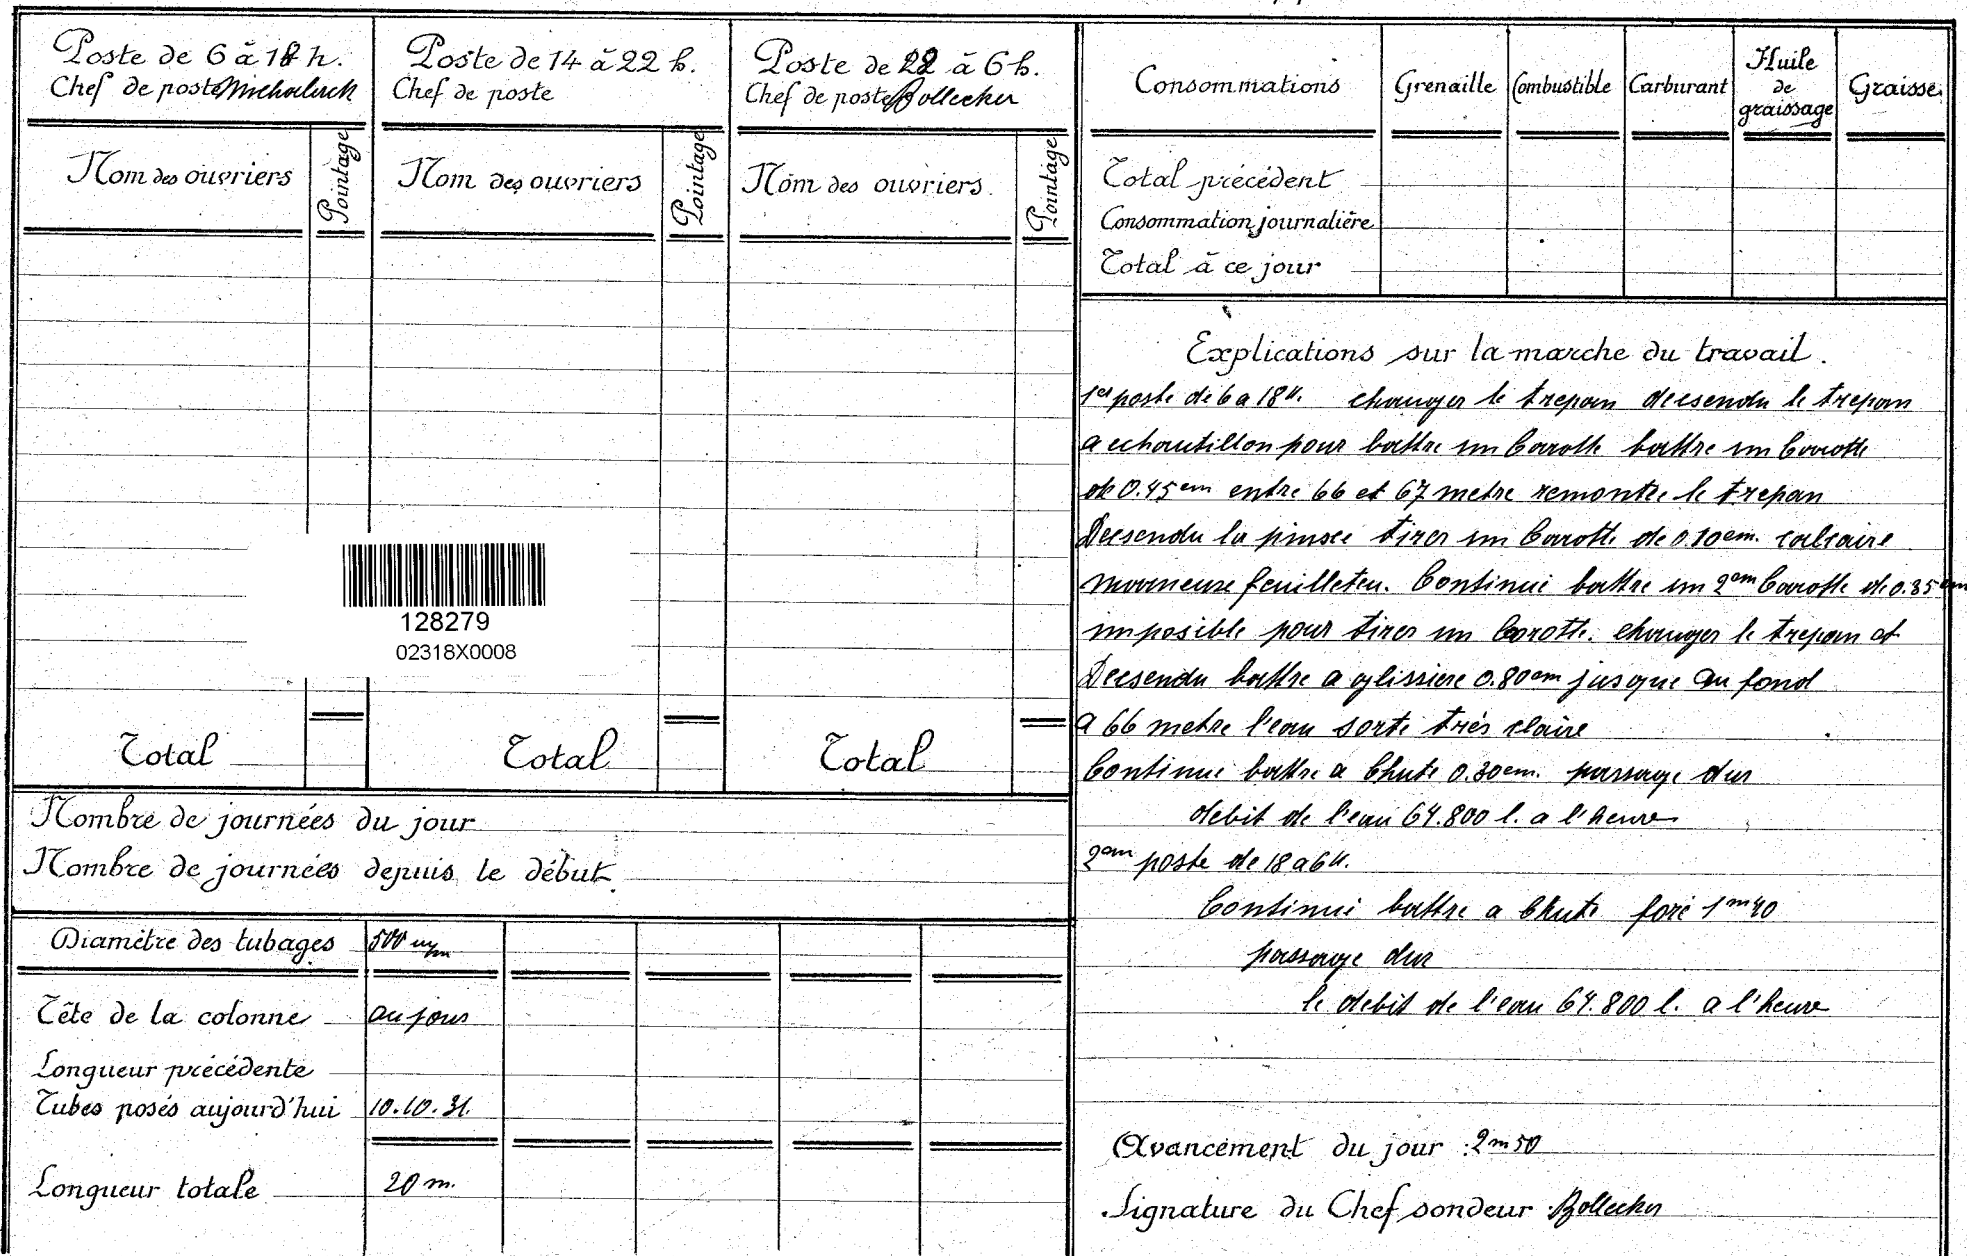 Poste de 6 à 18 h.
Chef de poste
Nom des ouvriers
Pointage
Total
Poste de 14 à 22 h.
Chef de poste
Nom des ouvriers
Pointage
Total
Poste de 22 à 6 h.
Chef de poste Bollecker
Nom des ouvriers
Pointage
Total
128279
02318X0008
Nombre de journées du jour
Nombre de journées depuis le début
Diamètre des tubages 500 m/m
Tête de la colonne au jour
Longueur précédente
Tubes posés aujourd'hui 10.10.31.
Longueur totale 20 m.
Consommations Grenaille Combustible Carburant Huile de graissage Graisse
Total précédent
Consommation journalière
Total à ce jour
Explications sur la marche du travail.
1er poste de 6 a 18 h. changer le trepan decsendu le trepan
a echantillon pour battre un Carotte battre un Carotte
de 0.45 cm entre 66 et 67 metre remonte le trepan
Decsendu la pinsce tirer un Carotte de 0.10 cm. calcaire
marneuse feuilleteu. Continui battre un 2em Carotte de 0.35 cm
imposible pour tirer un Carotte. changer le trepan et
Decsendu battre a glissiere 0.80 cm jusque au fond
a 66 metre l'eau sorte très claire
Continui battre a Chute 0.30 cm. passage dur
debit de l'eau 64.800 l. a l'heure
2em poste de 18 a 6 h.
Continui battre a Chute foré 1m40
passage dur
le debit de l'eau 64.800 l. a l'heure
Avancement du jour : 2m50
Signature du Chef sondeur Bollecker